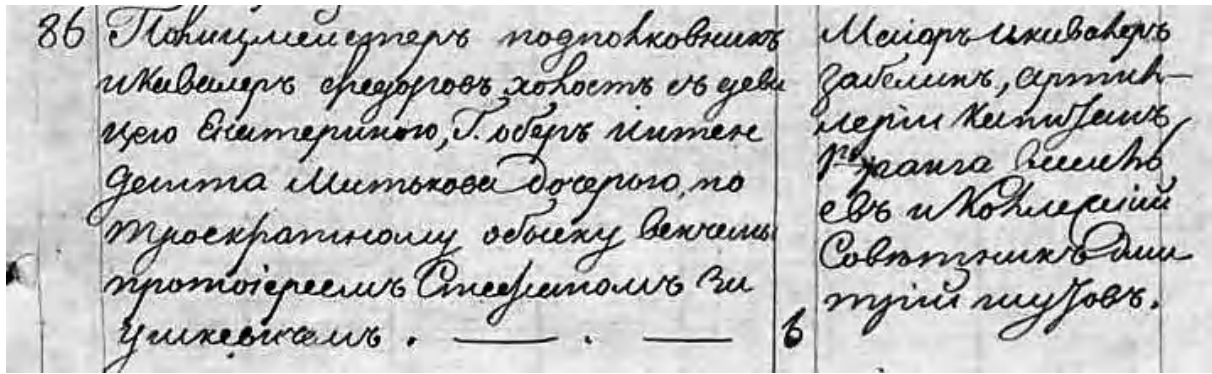 86 Полицмейстеръ подполковникъ
и кавалеръ Федоровъ, холостъ съ деви
цею Екатериною, Г. оберъ интен
дента Митькова дочерью, по
троекратному обыску венчаны
протоіереемъ Стефаномъ Зи
ушкевичемъ .
6
Маіоръ и кавалеръ
Забелинъ, артил-
леріи капитанъ
1го ранга
евъ и Коллежскій
Советникъ Дми
трій шубовъ.